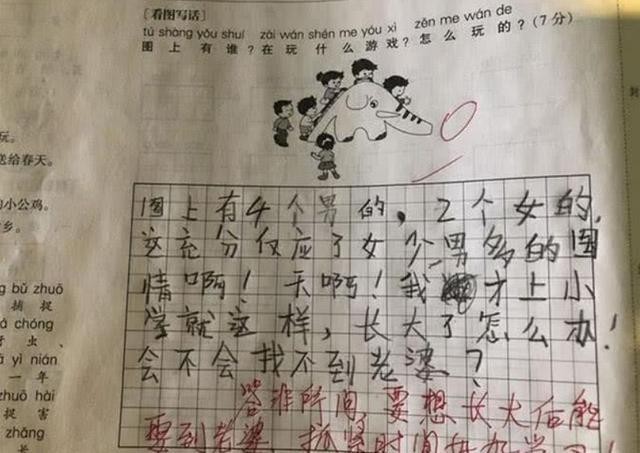 [看图写话]
tú shàng yǒu shuí zài wán shén me yóu xì zěn me wán de
图上有谁？在玩什么游戏？怎么玩的？（7分）
图上有4个男的，2个女的，
这充分仅应了女少男多的国
情啊！天啊！我才上小
学就这样，长大了怎么办！
会不会找不到老婆？
答非所问，要想长大后能
娶到老婆，抓紧时间
玩。
送给春天。
小公鸡。
乡。
bǔ zhuō
捕捉
chóng
虫、
yì nián
一年
zhuō hài
捉害
zhǎng
长